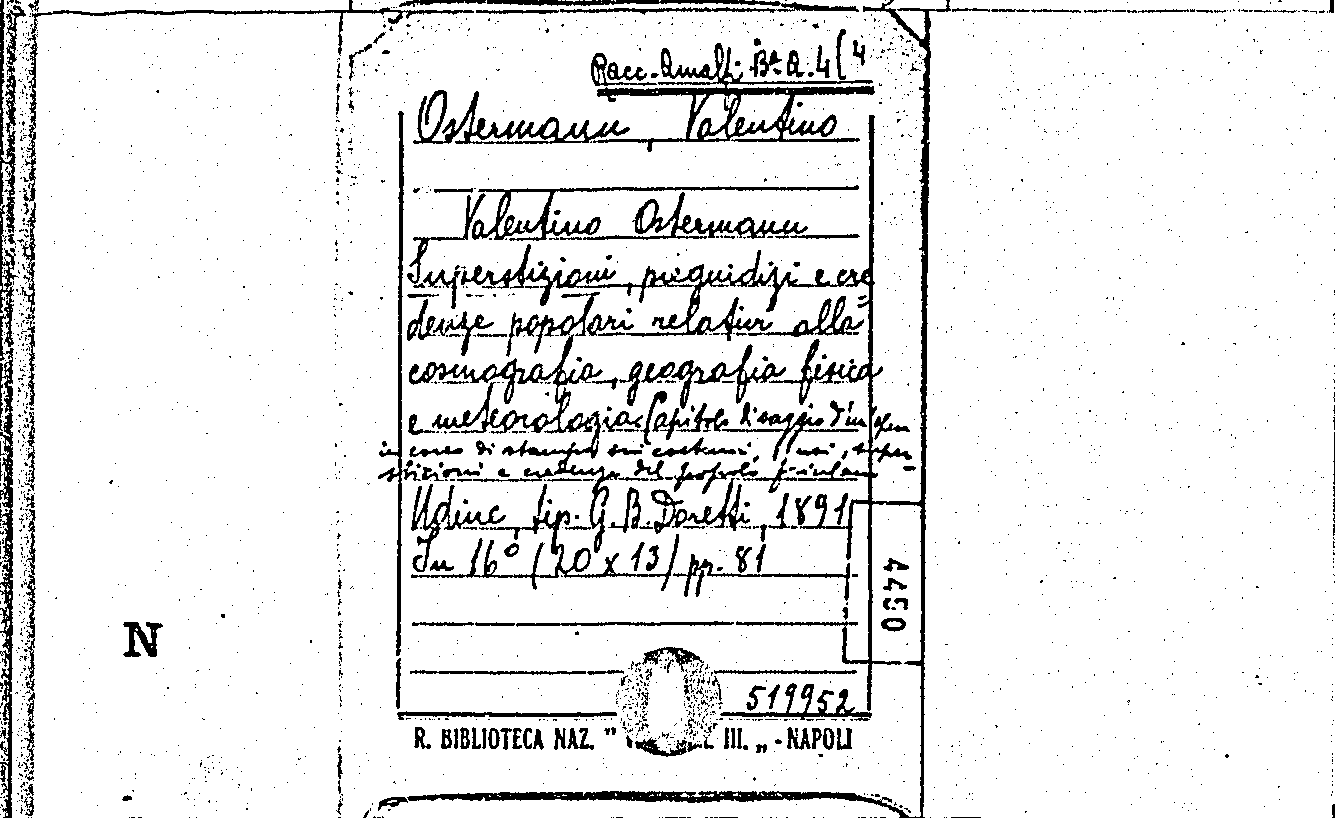 Racc. Amalfi Bª. A. 4 (4
Ostermann, Valentino
Valentino Ostermann
Superstizioni, pregiudizi e cre=
denze popolari relative alla
cosmografia, geografia fisica
e meteorologia. Capitolo di saggio d'un'opera
in corso di stampa sui costumi, usi, super-
stizioni e credenze del popolo friulano
Udine, tip. G. B. Doretti, 1891
In 16° (20 x 13) pp. 81
4490
N
519952
R. BIBLIOTECA NAZ. " III. „ - NAPOLI